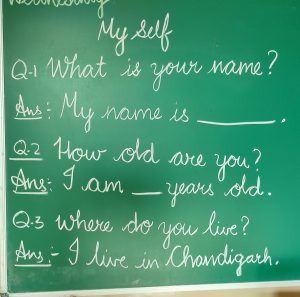 Wednesday
My Self
Q-1 What is your name?
Ans: My name is ______.
Q.2 How old are you?
Ans: I am __ years old.
Q.3 Where do you live?
Ans:- I live in Chandigarh.